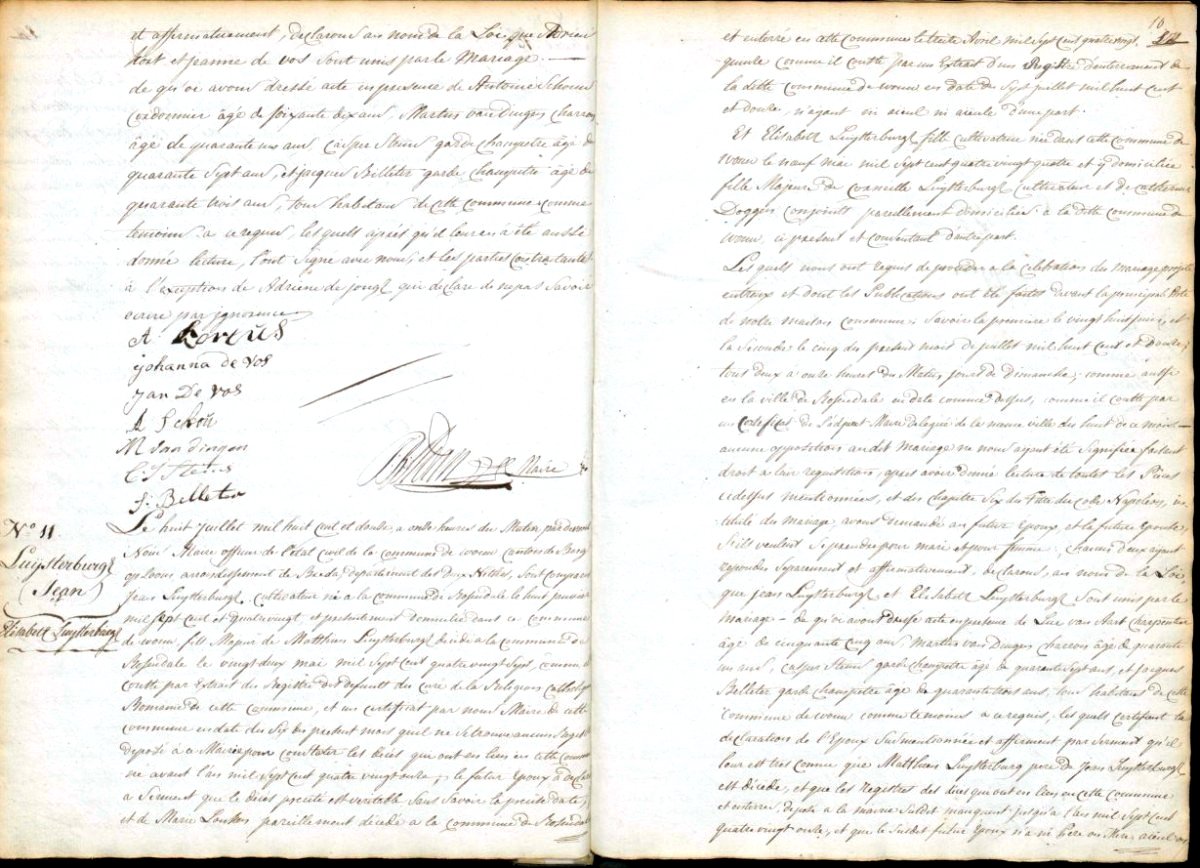 et affirmativement, declarons au nom de la Loi, que Adrien
hort et jeanne de vos sont unis par le Mariage.
de qu'oi avons dressé acte en presence de Antoine Schoon
Cordonnier âgé de soixante dix ans, Martin van Dingen charron
âgé de quarante un ans, Casper Steins garde champetre âgé de
quarante sept ans, et jaques Belleter garde champetre âgé de
quarante trois ans, tous habitans de cette commune comme
temoins a ce requis, les quels aprés qu'il leur en à été aussi
donné lecture, l'ont signé avec nous, et les parties contractantes
à l'exception de Adriene de jongh qui declare de ne pas savoir
ecrire par ignorence
johanna de vos
jan De vos
A Schon
M van dingen
C J Steins
J: Belleter
Maire
N.º 11.
Luijsterburgh
(Jean)
et
Elisabeth Luijsterburgh
Le huit juillet mil huit cent et douse, a onse heures du Matin, par devant
Nous Maire officier de l'etat civil de la commune de wouw Canton de Berg
op Zoom, arrondissement de Breda, departement des Deux Nethes, sont comparu
Jean Luijsterburgh, Cultivateur né a la commune de Rosendale le huit janvier
mil sept cent et quatre vingt, et presentement domicilié dans ce commune
de wouw, fils Majeur de Matthieu Luijsterburgh decedé a la commune de
Rosendale le vingt deux mai mil sept cent quatre vingt sept, comme il
conste par Extrait des Registre des defunts du curé de la Religion catholique
Romaine de cette commune, et un certificat par nous Maire de cette
commune en date du six du present mois qu'il ne se trouve aucun Registre
deposé à ce Mairie pour constater les decés qui ont eu lieu en cette commune
ne avant l'an mil sept cent quatre vingt onse, le futur Epoux à declaré
a serment que le decés precité est veritable sans savoir la precise date,
et de Marie Lonken pareillement decedé a la commune de Rosendale
10
et enterré en cette commune le trente Avril mil sept cent quatre vingt
quinse comme il conste par un Extrait d'un Registre d'enterrement de
la ditte commune de wouw en date du sept juillet mil huit cent
et douse. n'ayant ni aieul ni aieule d'une part.
Et Elisabeth Luijsterburgh fille cultivateur née dans cette commune de
wouw le neuf mai mil sept cent quatre vingt quatre et y domiciliée
fille Majeure de Corneille Luijsterburgh cultivateur et de Catherine
Doggen conjoints pareillement domiciliés à la ditte commune de
wouw, ci present et consentant d'autre part.
Les quels nous ont requis de proceder a la celebration du mariage projeté
entreux et dont les Publications ont été faites devant la principale Porte
de notre maison commune: savoir la premiere le vingt huit juin, et
la seconde le cinq du present mois de juillet mil huit cent et douse;
tous deux a onse heures du Matin, jour de Dimanche; comme aussi
en la ville de Rosendale en date comme dessus, comme il conste par
un certificat de l'adjoint Maire delegué de la meme ville du huit de ce mois
aucune opposition au dit mariage ne nous ayant été signifiée faisant
droit a leur requisitions, apres avoir donné lecture de toutes les Pieces
cidessus mentionnées, et du chapitre six du Titre du code Napoleon, in-
titulé du mariage, avons demandé au futur epoux et la future Epouse
s'ils veulent se prendre pour mari et pour femme: chacun d'eux ayant
repondu separement et affirmativement, declarons, au nom de la Loi,
que jean Luijsterburgh et Elisabeth Luijsterburgh sont unis par le
Mariage - de qu'oi avons dressé acte en presence de Luc van Aart charpentier
âgé de cinquante cinq ans, Martin van Dingen charron âgé de quarante
un ans, Casper Steins garde champetre âgé de quarante sept ans, et jacques
Belleter garde champetre âgé de quarante trois ans, tous habitans de cette
commune de wouw comme temoins a ce requis, les quels certifient la
declaration de l'Epoux susmentionnée et affirment par serment qu'il
leur est tres connu que Matthieu Luijsterburg pere de jean Luijsterburgh
est decedé, et que les Registres des decés qui ont eu lieu en cette commune
et enterres deposé a la mairie susdit manquent jusqu'a l'an mil sept cent
quatre vingt onse, et que le susdit futur Epoux n'a ni Pere ou Mere, aieul ou